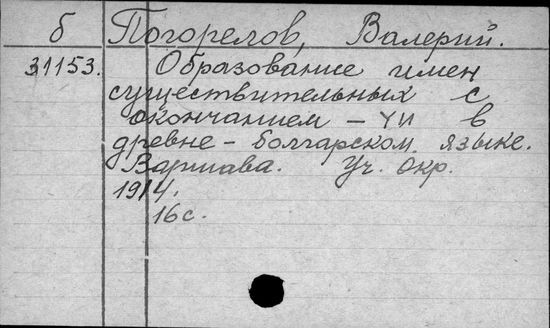 б Погорелов, Валерий.
31153. Образование имен
существительных с
окончанием - ʏи в
древне-болгарском языке.
Варшава. Уч. Окр.
1914.
16 с.